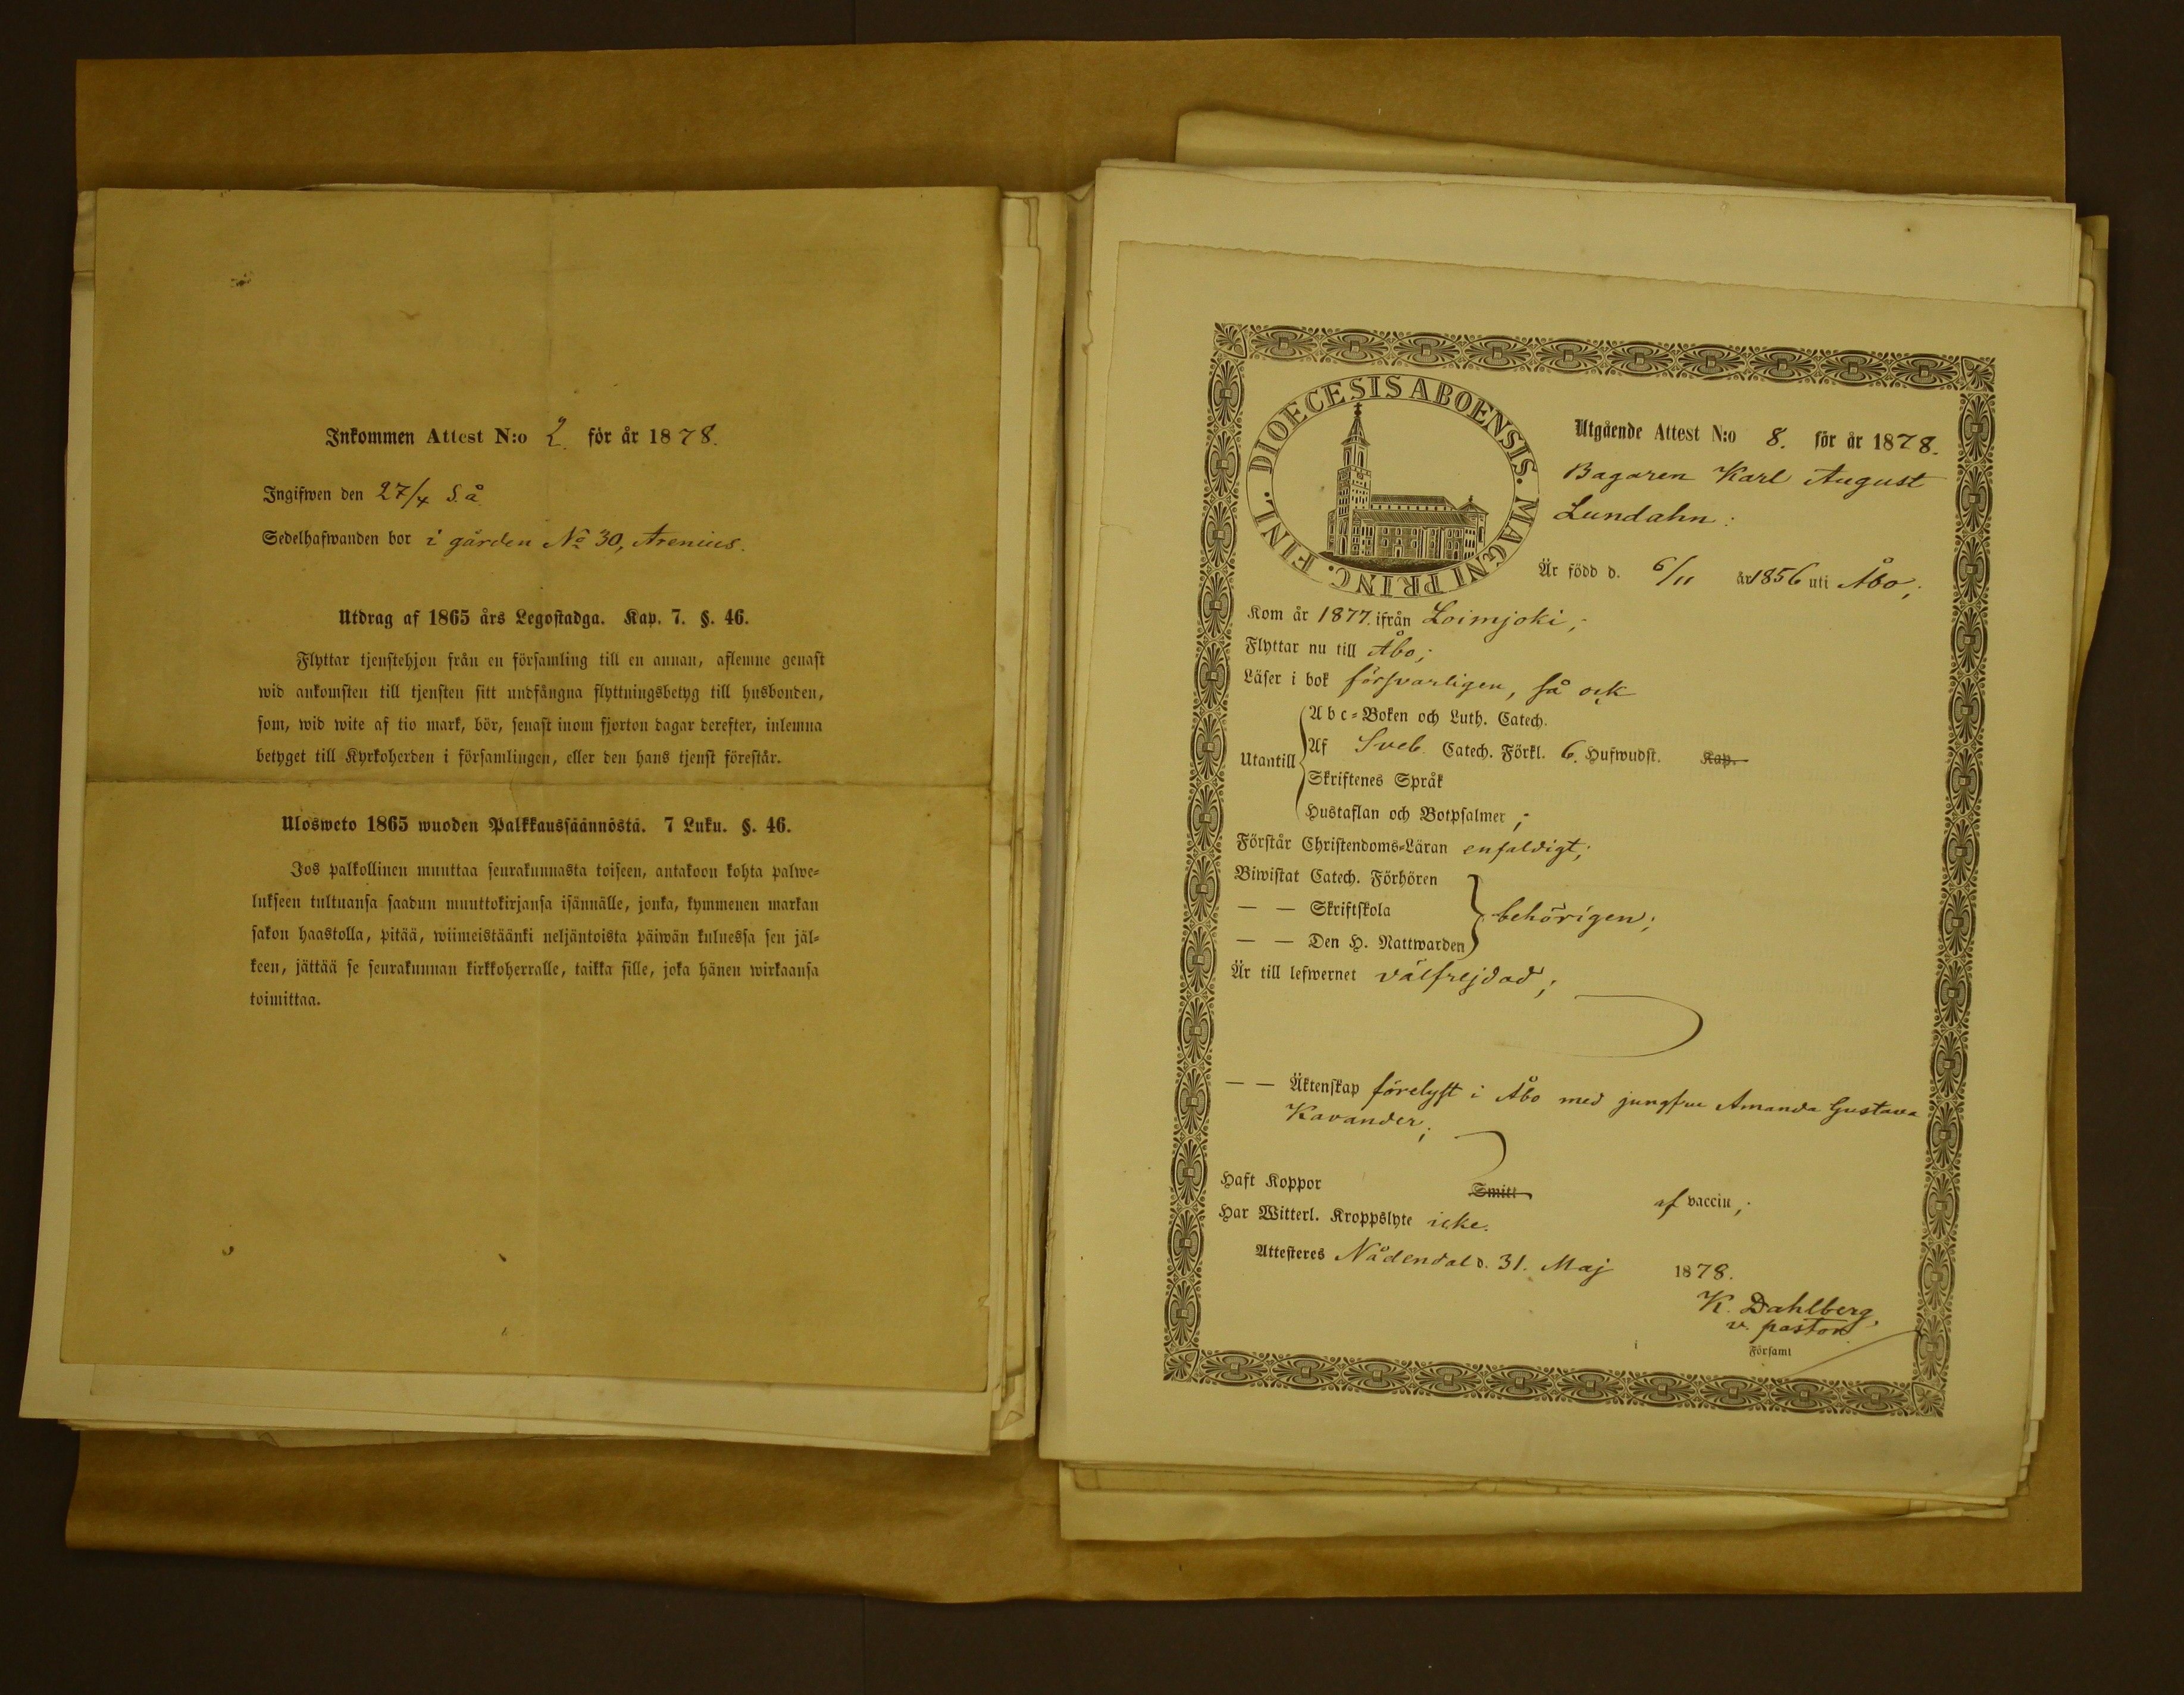 Inkommen Attest N:o 2. för år 1878.
Ingifwen den 27/4 S. å.
Sedelhafwanden bor i gården No 30, Arenius.
Utdrag af 1865 års Legostadga. Kap. 7. §. 46.
Flyttar tjenstehjon från en församling till en annan, aflemne genast
wid ankomsten till tjensten sitt undfångna flyttningsbetyg till husbonden,
som, wid wite af tio mark, bör, senast inom fjorton dagar derefter, inlemna
betyget till Kyrkoherden i församlingen, eller den hans tjenst förestår.
Ulosweto 1865 wuoden Palkkaussäännöstä. 7 Luku. §. 46.
Jos palkollinen muuttaa seurakunnasta toiseen, antakoon kohta palwe-
lukseen tultuansa saadun muuttokirjansa isännälle, jonka, kymmenen markan
sakon haastolla, pitää, wiimeistäänki neljäntoista päiwän kuluessa sen jäl-
keen, jättää se seurakunnan kirkkoherralle, taikka sille, joka hänen wirkaansa
toimittaa.
DIOECESIS ABOENSIS. MAGNI PRINC. FINL.
Utgående Attest N:o 8. för år 1878.
Bagaren Karl August
Lundahn:
Är född d. 6/11 år 1856 uti Åbo;
Kom år 1877. ifrån Loimjoki;
Flyttar nu till Åbo;
Läser i bok försvarligen, så ock
Utantill
Abc-Boken och Luth. Catech.
Af Sveb. Catech. Förkl. 6. Hufwudst. Kap.
Skriftenes Språk
Hustaflan och Botpsalmer;
Förstår Christendoms-Läran enfaldigt;
Biwistat Catech. Förhören
— — Skriftskola
behörigen;
— — Den H. Nattwarden
Är till lefwernet välfrejdad;
— — Äktenskap förelyst i Åbo med jungfru Amanda Gustava
Kavander;
Haft Koppor Smitt af vaccin;
Har Witterl. Kroppslyte icke.
Attesteres Nådendal d. 31. Maj 1878.
K. Dahlberg,
v. pastor.
i Församl